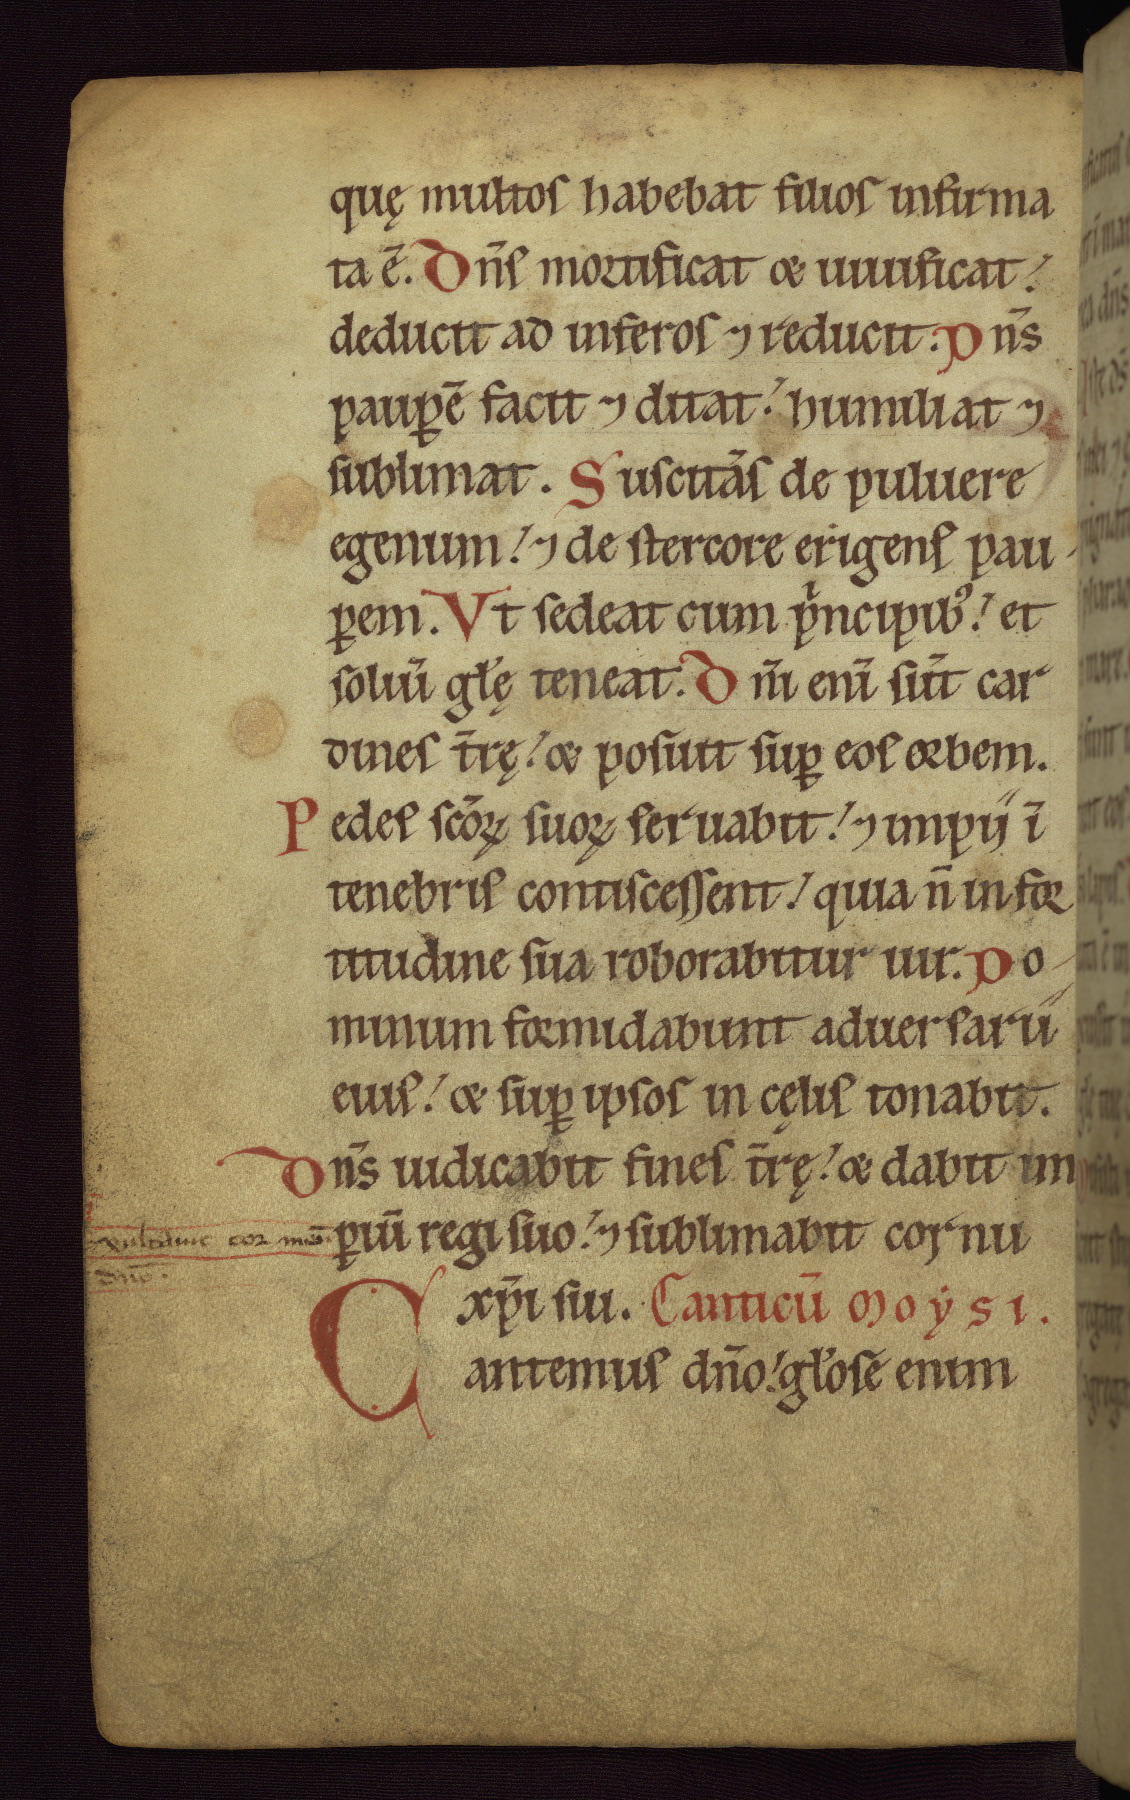 quę multos habebat filios infirma
ta ē. Dn̄s mortificat & uiuificat!
deducit ad inferos ⁊ reducit. Dn̄s
paup̱ē facit ⁊ ditat! humiliat ⁊
sublimat. Suscitās de puluere
egenum! ⁊ de stercore erigens pau-
p̱em. Vt sedeat cum pͥncipib⁹! et
soliū gl̄ę teneat. Dn̄i eni̅ su̅t car
dines t̄rę! & posuit sup̱ eos orbem.
Pedes sc̄oꝝ suoꝝ seruabit! ⁊ impij i̅
tenebris contiscessent! quia n̅ in for
titudine sua roborabitur uir. Do-
minum formidabunt aduersarii
eius! & sup̱ ipsos in cęlis tonabit.
Dn̄s iudicabit fines t̄rę! & dabit im
p̱iū regi suo! ⁊ sublimabit cornu
xp̄i sui. Canticū Moẏsi.
Cantemus dn̄o! gl̄ose enim
xultauit cor meū
dn̄o.